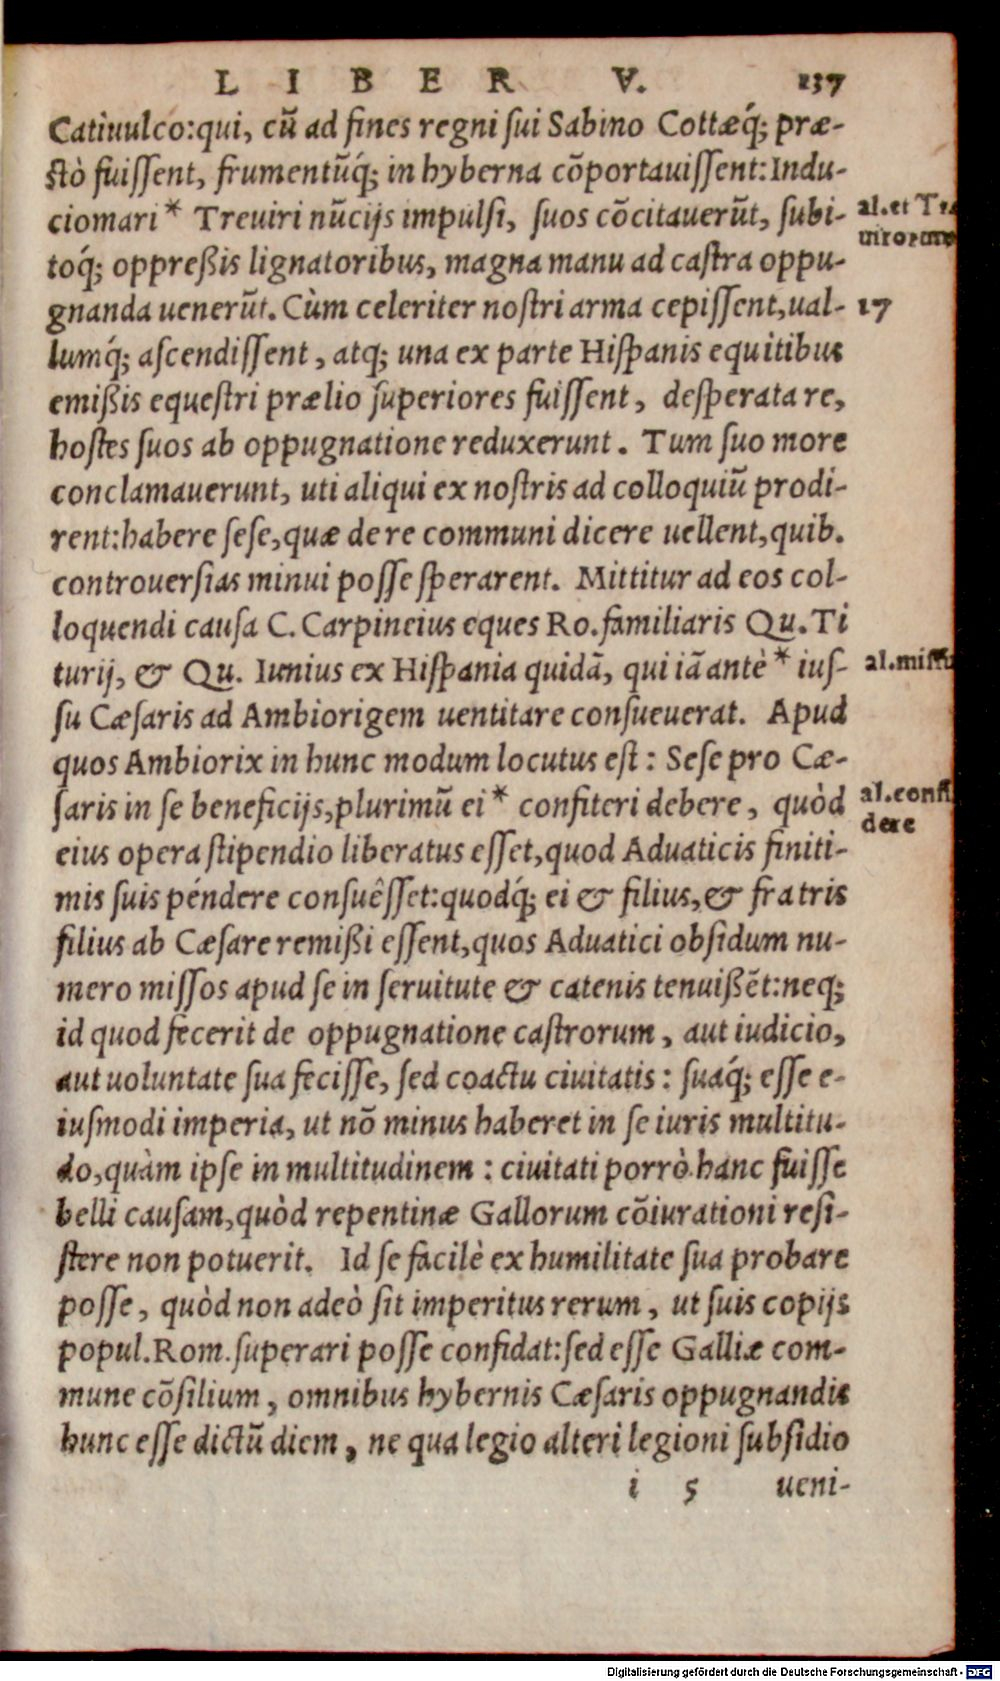 LIBER V. 137
Catiuulco:qui, cū ad fines regni ſui Sabino Cottæq́; præ-
ſtò fuiſſent, frumentūq́; in hyberna cōportauiſſent:Indu-
ciomari * Treuiri nūcijs impulſi, ſuos cōcitauerūt, ſubi-
al.et Tre
uirorum
toq́; oppreßis lignatoribus, magna manu ad caſtra oppu-
gnanda uenerūt. Cùm celeriter noſtri arma cepiſſent,ual-
17
lumq́; aſcendiſſent, atq; una ex parte Hiſpanis equitibus
emißis equeſtri prælio ſuperiores fuiſſent, deſperata re,
hoſtes ſuos ab oppugnatione reduxerunt. Tum ſuo more
conclamauerunt, uti aliqui ex noſtris ad colloquiū prodi-
rent:habere ſeſe,quæ de re communi dicere uellent,quib.
controuerſias minui poſſe ſperarent. Mittitur ad eos col-
loquendi cauſa C. Carpineius eques Ro.familiaris Qu.Ti
turij, & Qu. Iunius ex Hiſpania quidā, qui iā antè * iuſ-
al.miſſu
ſu Cæſaris ad Ambiorigem uentitare conſueuerat. Apud
quos Ambiorix in hunc modum locutus eſt: Seſe pro Cæ-
ſaris in ſe beneficijs,plurimū ei * confiteri debere, quòd
al.confi
dere
eius opera ſtipendio liberatus eſſet,quod Aduaticis finiti-
mis ſuis péndere conſuêſſet:quodq́; ei & filius,& fratris
filius ab Cæſare remißi eſſent,quos Aduatici obſidum nu-
mero miſſos apud ſe in ſeruitute & catenis tenuißēt:neq;
id quod fecerit de oppugnatione caſtrorum, aut iudicio,
aut uoluntate ſua feciſſe, ſed coactu ciuitatis: ſuaq́; eſſe e-
iuſmodi imperia, ut nō minus haberet in ſe iuris multitu-
do,quàm ipſe in multitudinem: ciuitati porrò hanc fuiſſe
belli cauſam,quòd repentinæ Gallorum cōiurationi reſi-
ſtere non potuerit. Id ſe facilè ex humilitate ſua probare
poſſe, quòd non adeò ſit imperitus rerum, ut ſuis copijs
popul.Rom.ſuperari poſſe confidat:ſed eſſe Galliæ com-
mune cōſilium, omnibus hybernis Cæſaris oppugnandis
hunc eſſe dictū diem, ne qua legio alteri legioni ſubſidio
i 5 ueni-
Digitalisierung gefördert durch die Deutsche Forschungsgemeinschaft - DFG